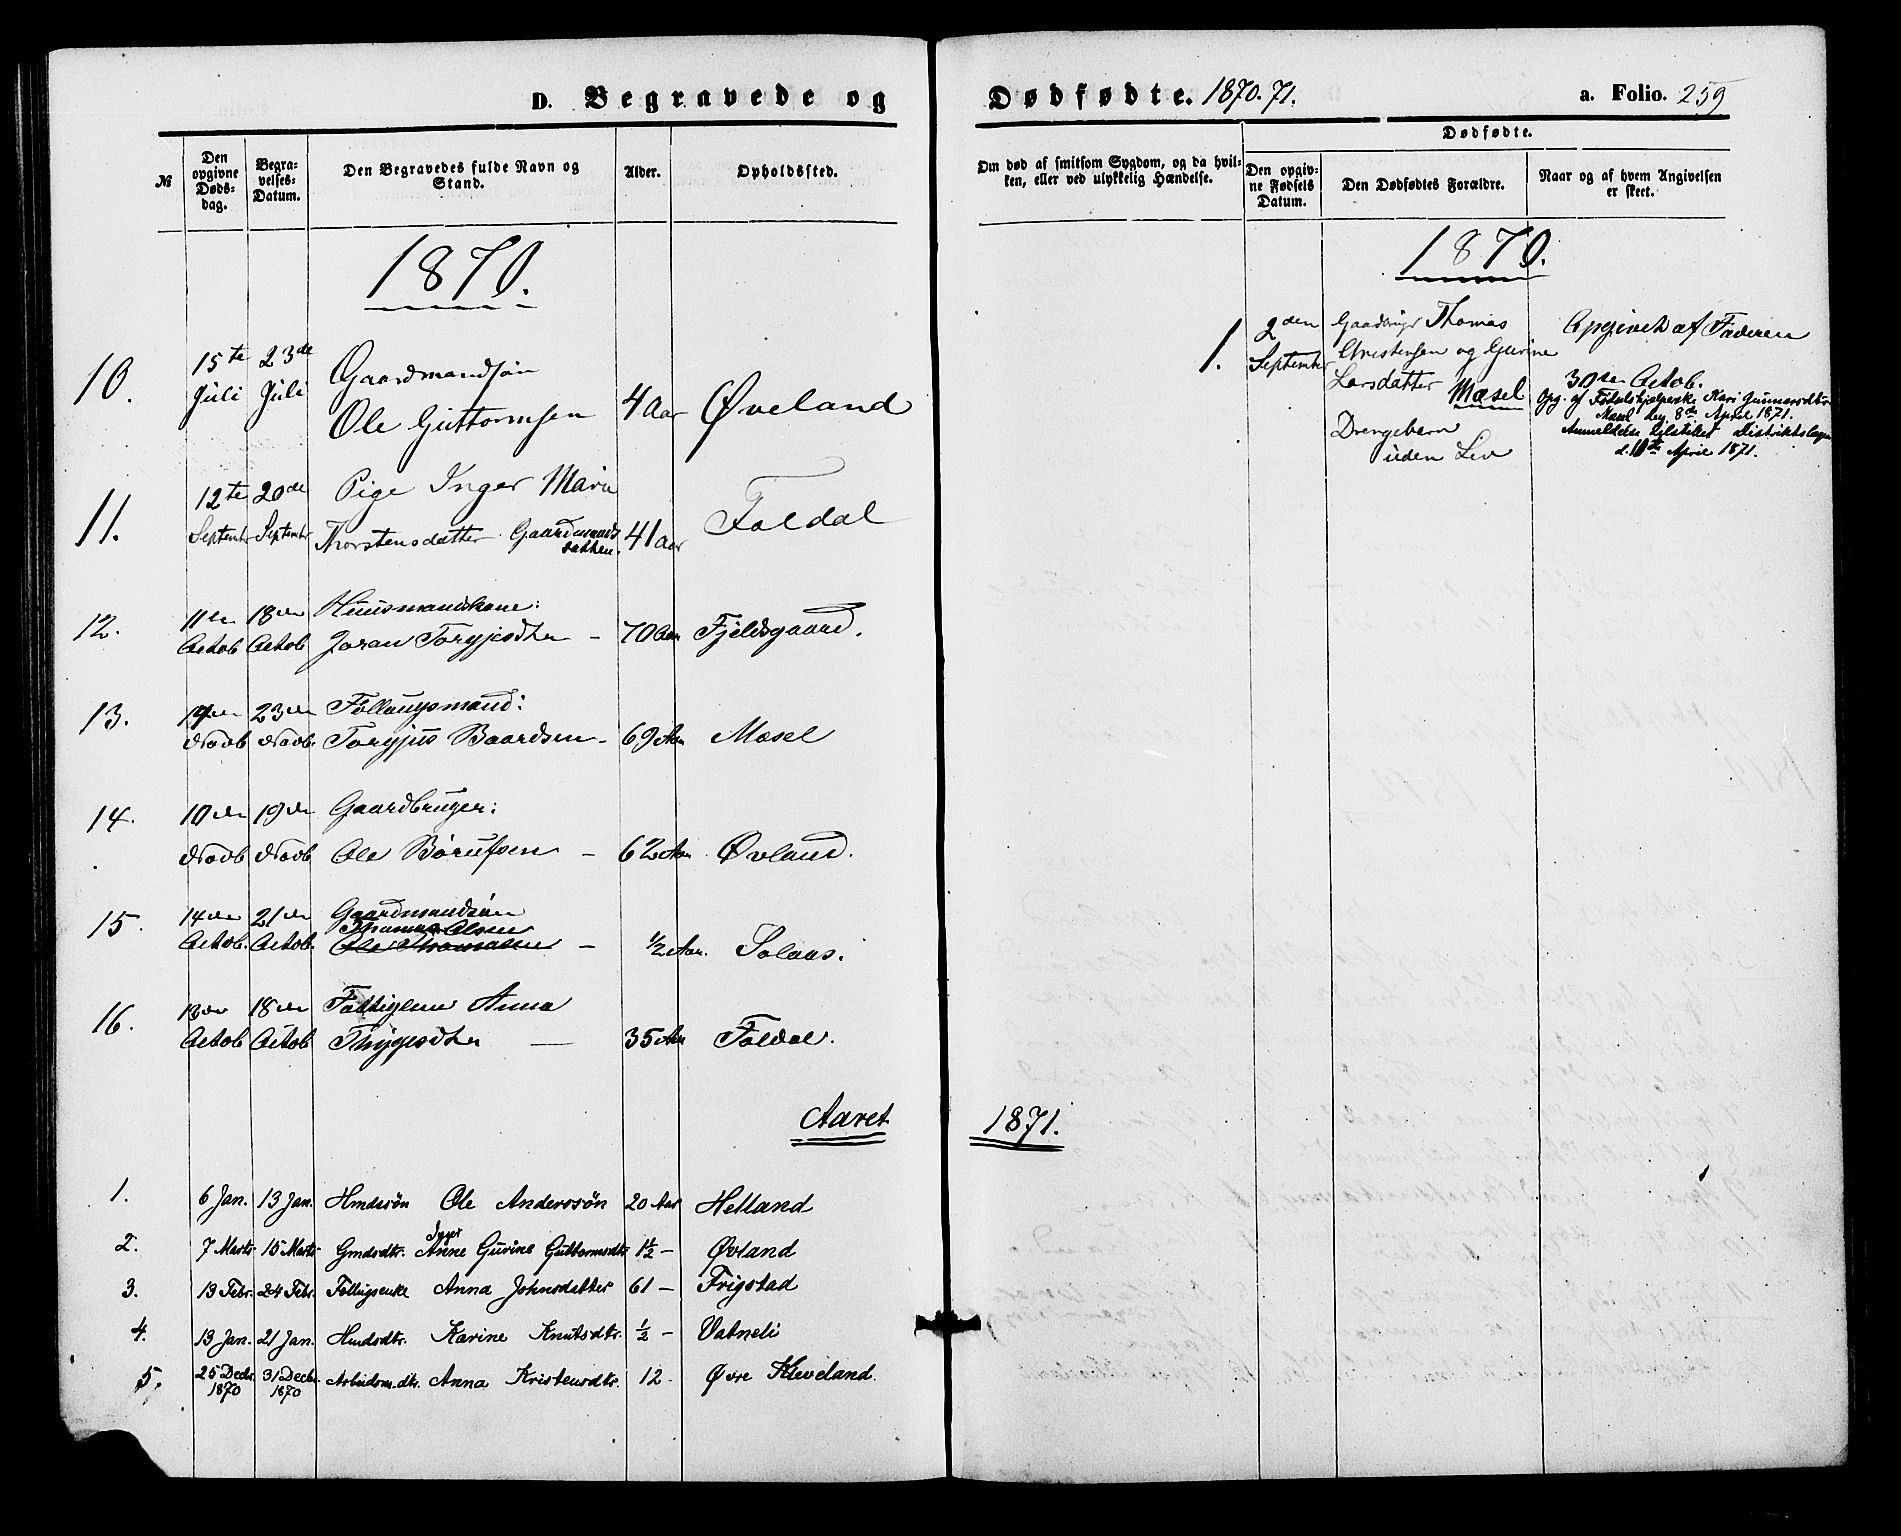 D. Begravede og
Dødfødte. 1870. 71.
a. Folio. 259
№
Den opgivne Døds-dag.
Begra-velses-Datum.
Den Begravedes fulde Navn og Stand.
Alder.
Opholdssted.
Om død af smitsom Sygdom, og da hvil-ken, eller ved ulykkelig Hændelse.
Dødfødte.
Den opgiv-ne Fødsels Datum.
Den Dødfødtes Forældre.
Naar og af hvem Angivelsen er skeet.
1870.
10. 15te Juli 23de Juli Gaardmandsøn
Ole Guttormsen 4 Aar Øveland
11. 12te September 20de September Pige Inger Marie
Thorstensdatter Gaardmands datter. 41 Aar Foldal
12. 11te Octob 18de Octob Huusmandskone:
Joran Torgjusdtr – 70 Aar Fjeldsgaard.
13. Novb 23de Novb. Føllaugsmand:
Torgjus Baardsen – 69 Aar Mosel
14. 10de Novb 19de Novb Gaardbruger:
Ole Børufsen – 62 Aar Øvland.
15. 14de Octob. 21de Octob. Gaardmandsøn
Thomas Olsen
Ole Thomassen – ½ Aar. Solaas.
16. 13de Octob 18de Octob Fattiglem Anna
– 35 Aar Foldal.
1870.
1. 2den September Gaardbrugr Thomas
Christensen og Gurine
Larsdatter Mæsel
Drengebarn
uden Liv
Opgivet af Faderen
30te Octob.
Opg. af Fødselshjælperske Kari Gunnarsdtr
Mæsel den 8de April 1871.
Anmeldelse tilstillet Distriktslægen
d. 10de April 1871.
Aaret 1871.
1. 6 Jan. 13 Jan. Hmdssøn Ole Anderssøn 20 Aar Helland
Inger
2. 7 Marts 15 Marts Gmdsdtr. Anne Gurine Guttormsdtr 1½ – Øvland
3. 13 Febr. 24 Febr. Føllugsenke Anna Johnsdatter 61 – Frigstad
4. 13 Jan. 21 Jan. Hmdsdtr. Karine Knutsdtr. ½ – Vatneli
5. 25 Decbr. 1870 31 Decbr. 1870 Arbeidsm.dtr. Anna Kristensdtr. 12 – Øvre Kleveland.